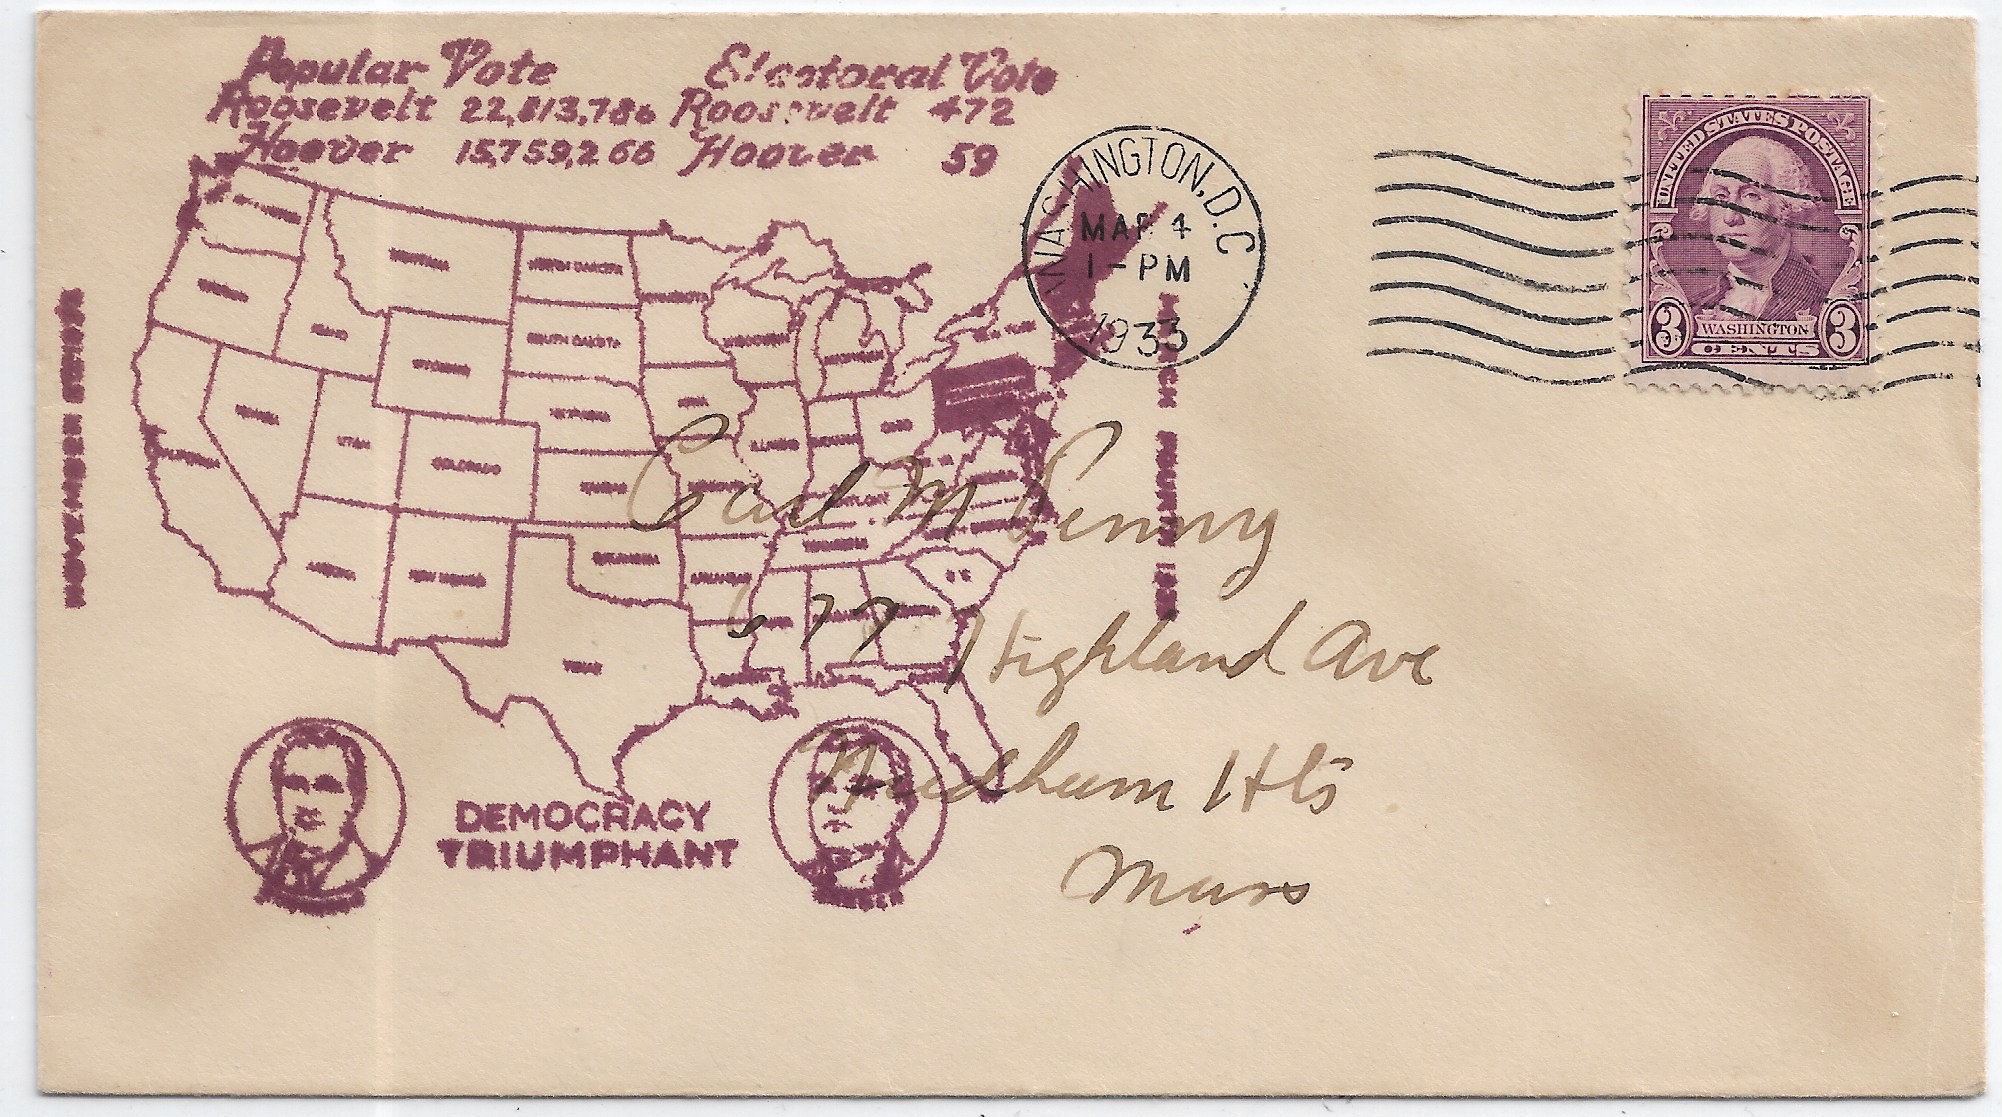 Popular Vote
Roosevelt 22,813,786
Hoover 15,759,266
Electoral Vote
Roosevelt 472
Hoover 59
WASHINGTON, D.C.
MAR 4
1-PM
1933
UNITED STATES POSTAGE
3 WASHINGTON 3
CENTS
NOVEMBER EIGHTH
MARCH FOURTH 1933
MONTANA
NORTH DAKOTA
MINNESOTA
IDAHO
SOUTH DAKOTA
WISCONSIN
MICHIGAN
WYOMING
IOWA
NEVADA
UTAH
COLORADO
ILLINOIS
INDIANA
OHIO
CALIFORNIA
KANSAS
ARIZONA
NEW MEXICO
OKLAHOMA
ARKANSAS
S.C.
TEXAS
LOUISIANA
Carl M Penny
677 Highland Ave
Needham Hts
Mass
DEMOCRACY
TRIUMPHANT